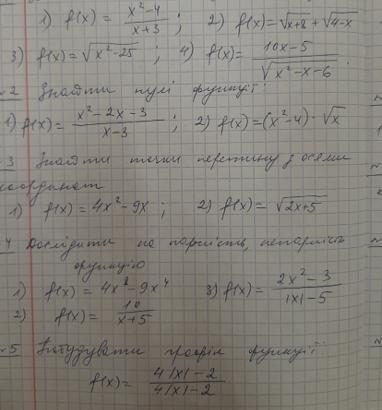 1) f(x) = x²-4 / x+3 ; 2) f(x)=√x+8 + √4-x
3) f(x)=√x²-25 ; 4) f(x)= 10x-5 / √x²-x-6 .
2 Знайти нулі функції:
1) f(x)= x²-2x-3 / x-3 ; 2) f(x)=(x²-4)·√x
3 Знайти точки перетину з осями
координат
1) f(x)=4x²-9x ; 2) f(x)= √2x+5
4 Дослідити на парність, непарність
функцію
1) f(x)= 4x²-9x⁴ 3) f(x)= 2x²-3 / |x|-5
2) f(x)= 10 / x+5
№5 Побудувати графік функції
f(x)= 4|x|-2 / 4|x|-2